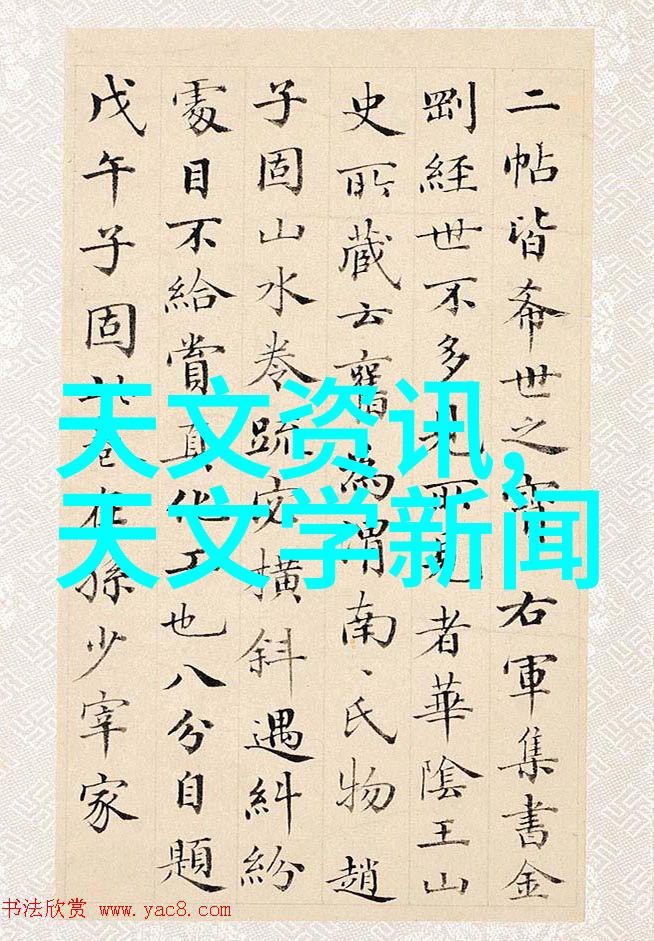 二帖皆希世之寳右軍集書金
剛經世不多見所見者華陰王山
史所藏云舊為渭南、氏物趙
子固山水卷疏密橫斜遇糾紛
處目不給賞真化工也八分自題
戊午子固此卷在孫少宰家
天文资讯,
天文学新闻
书法欣赏 www.yac8.com